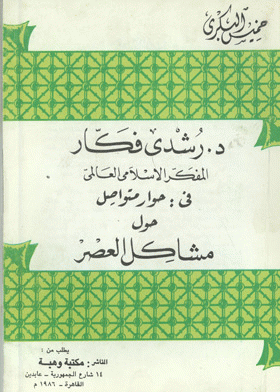 خميس البكرى
د. رشدى فكار
المفكر الاسلامى العالمى
فى : حوار متواصل
حول
مشاكل العصر
يطلب من :
الناشر : مكتبة وهبة
١٤ شارع الجمهورية - عابدين
القاهرة - ١٩٨٦ م